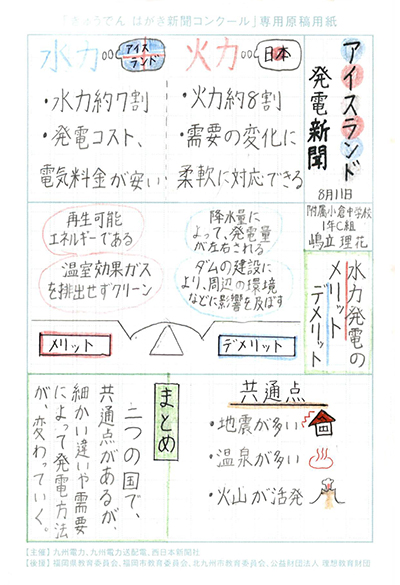 「きゅうでん はがき新聞コンクール」専用原稿用紙
アイスランド
発電新聞
8月11日
附属小倉中学校
1年C組
嶋立 理花
火力
日本
・火力約8割
・需要の変化に
柔軟に対応できる
水力
アイス
ランド
・水力約7割
・発電コスト、
電気料金が安い
水力発電の
メリット
デメリット
再生可能
エネルギーである
温室効果ガス
を排出せずクリーン
メリット
降水量に
よって、発電量
が左右される
ダムの建設に
より、周辺の環境
などに影響を及ぼす
デメリット
共通点
・地震が多い
・温泉が多い
・火山が活発
まとめ
二つの国で、
共通点があるが、
細かい違いや需要
によって発電方法
が、変わっていく。
【主催】九州電力、九州電力送配電、西日本新聞社
【後援】福岡県教育委員会、福岡市教育委員会、北九州市教育委員会、公益財団法人 理想教育財団